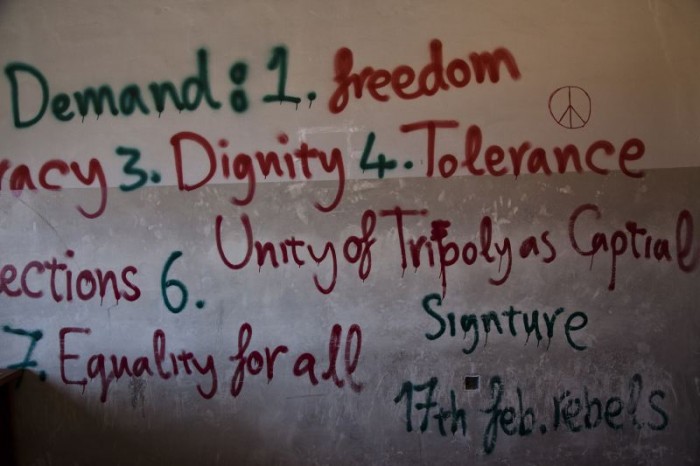 Demand: 1. freedom
racy 3. Dignity 4. Tolerance
ections 6. Unity of Tripoly as Captial
Signture
7. Equality for all
17th feb. rebels